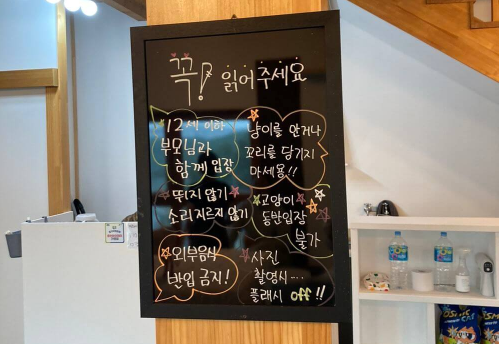 꼭! 읽어주세요
12세 이하
부모님과
함께 입장
냥이를 안거나
꼬리를 당기지
마세용!!
뛰지 않기
소리지르지 않기
고양이
동반입장
불가
외부음식
반입 금지!
사진
촬영시....
플래시 off!!